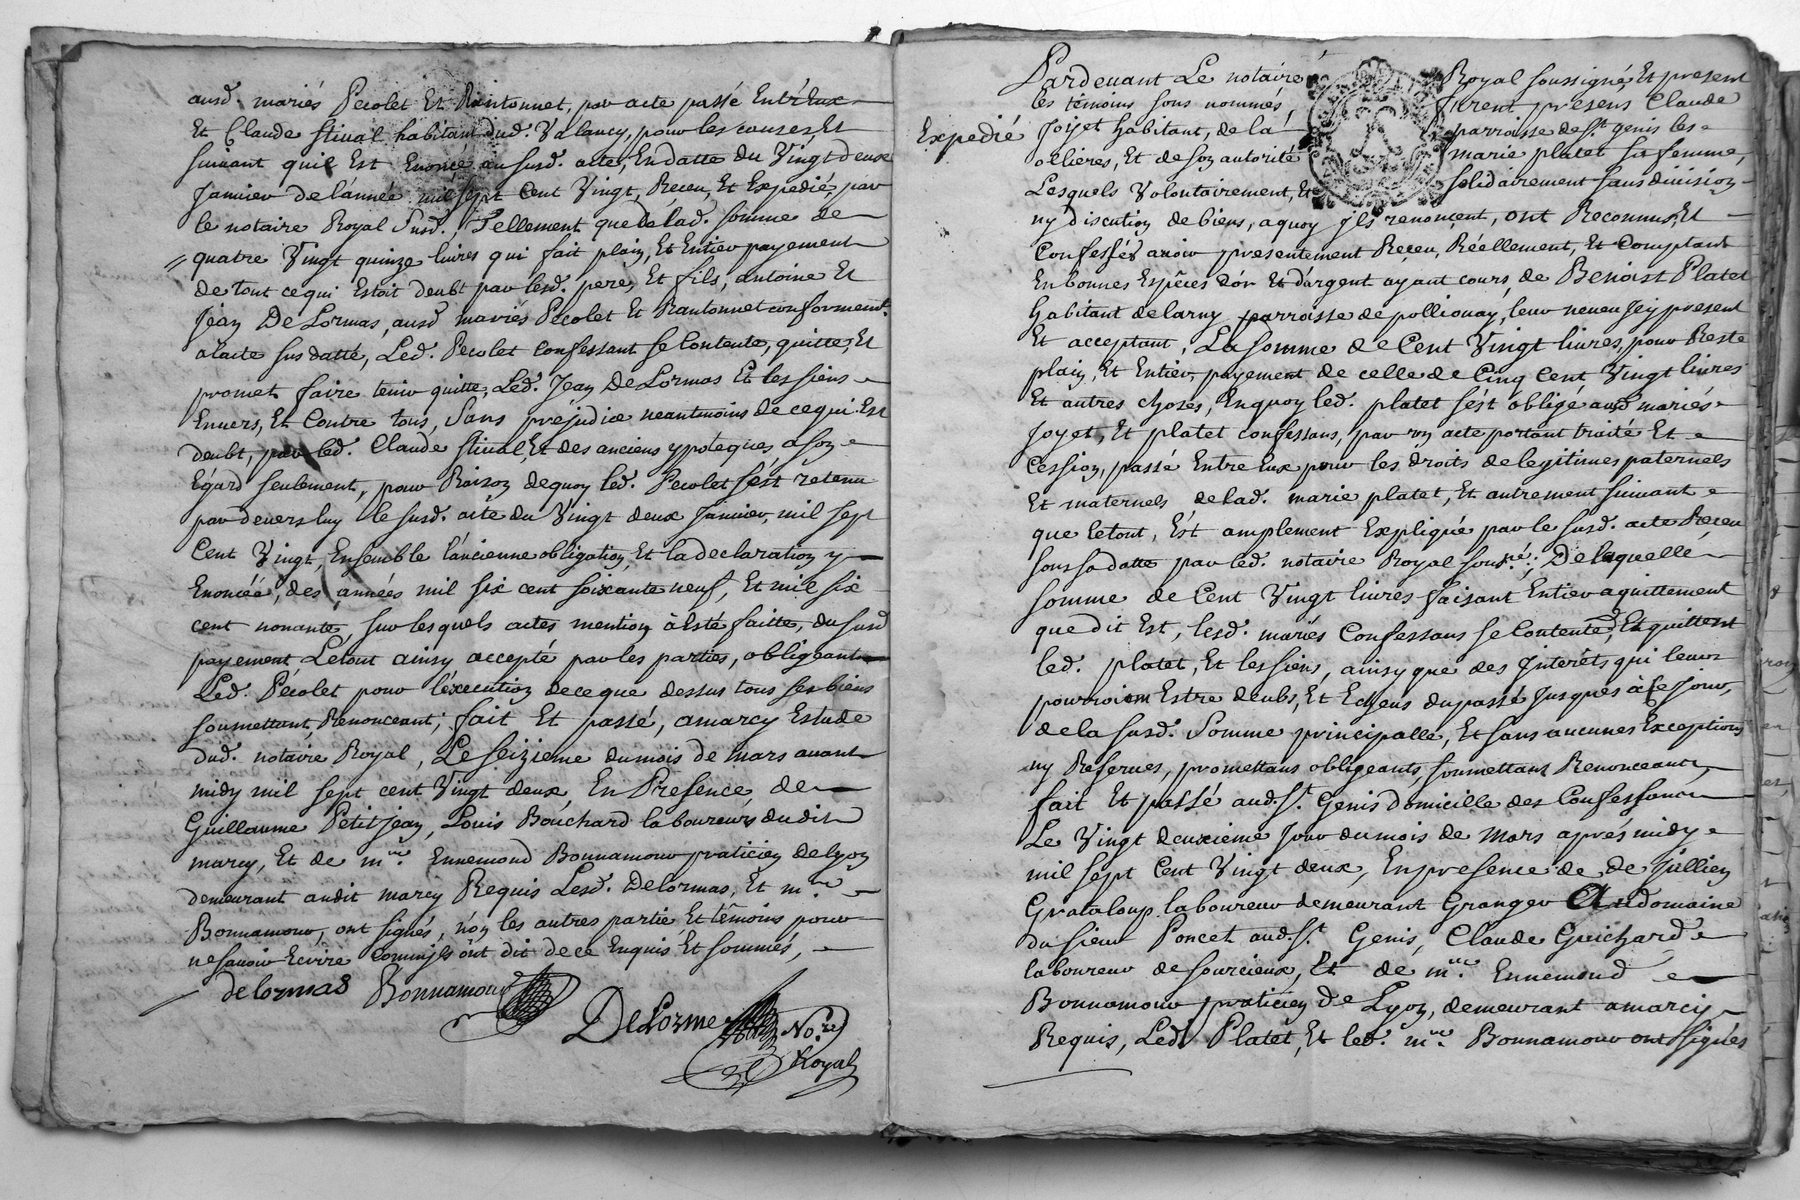 ausd. mariés Pecolet Et Rantonnet, par acte passé Entr'Eux
Et Claude Stival habitant dud. Valancy, pour les causes Et
suivant quil Est Enoncé au susd. acte, En datte du Vingt deux
Janvier de lannée mil sept Cent Vingt, Receu, Et Expedié par
le notaire Royal Susd. Tellement que de lad. somme de
quatre Vingt quinze livres qui fait plain, Et Entier payement
de tout ce qui Estoit deubt par lesd. pere, Et fils, antoine Et
Jean De Lormas, ausd. mariés Pecolet Et Rantonnet conformemt.
a lacte sus datté, Led. Pecolet confessant se Contente, quitte, Et
promet faire tenir quitte, Led. Jean De Lormas Et les siens
Envers, Et Contre tous, Sans préjudice neantmoins de ce qui Est
deubt, par led. Claude Stival, Et des anciens ypoteques, a son
Egard seulement, pour Raison de quoy led. Pecolet s'est rétenu
par devers luy le susd. acte du Vingt deux Janvier, mil sept
Cent Vingt, Ensemble l'ancienne obligation, Et la declaration y
Enoncéé, des années mil six cent soixante neuf, Et mil six
cent nonante sur lesquels actes mention à Esté faitte, du susd.
payement, Letout ainsy accepté par les parties, obligeant
Led. Pécolet pour l'éxecution de ce que dessus tous ses biens
soumettant, Renonceant; fait Et passé, a marcy Estude
dud. notaire Royal, Le seizieme du mois de mars avant
midy mil sept cent Vingt deux En Présence de
Guillaume Petit jean, Louis Bouchard laboureurs dudit
marcy, Et de me. Ennemond Bonnamour praticien de lyon
demeurant audit marcy Requis Lesd. Delormas, Et me.
Bonnamour, ont signés, non les autres partie, Et témoins pour
ne savoir Ecrire Comm'ils ont dit de ce Enquis, Et sommés,
delormas Bonnamour
DeLorme No.re
Royal
Expedié
Pardevant Le notaire Royal soussigné, Et present
les témoins sous nommés, furent présens Claude
Joyet habitant, de la parroisse de St. genis les
ollieres, Et de son autorité marie platet sa femme,
Lesquels Volontairement, Et solidairement sans division
ny discution de biens, a quoy jls renonçent, ont Reconnus, Et
Confessés avoir presentement Reçeu, Réellement, Et Comptant
En bonnes Espéces d'or Et d'argent ayant cours, de Benoist Platet
habitant de larny parroisse de pollionay, leur neveu jcy present
Et acceptant, La somme de Cent Vingt livres, pour Reste
plain, Et Entier payement de celle de Cinq Cent Vingt livres
Et autres choses, En quoy led. platet s'ést obligé ausd. mariés
Joyet, Et platet confessans, par un acte portant traité Et
cession, passé Entre Eux pour les droits de legitimes paternels
Et maternels de lad. marie platet, Et autrement suivant
que letout, Est amplement Expliqué par le susd. acte Receu
sous sa datte par led. notaire Royal sous.né. De laquelle
somme de Cent Vingt livres faisant Entier aquittement
que dit Est, lesd. mariés Confessans se Contentent, Et quittent
led. platet, Et les siens, ainsy que des Jnteréts qui leur
pourroient Estre deubs, Et Echeus du passé Jusques à se Jour,
de la susd. Somme principalle, Et sans aucunes Exceptions
ny Reserves, promettans obligeants, soumettans Renonceants
fait Et passé aud. St. Genis domicille des Confessans
Le Vingt deuxieme Jour du mois de Mars aprés midy
mil sept Cent Vingt deux, En presence de de Jullien
Grataloup laboureur demeurant Granger Au domaine
du sieur Poncet aud. St. Genis, Claude Guichard
laboureur de sourcieux, Et de me. Ennemond
Bonnamour praticien De Lyon, demeurant a marcy
Requis, Led. Platet, Et led. me. Bonnamour ont signés